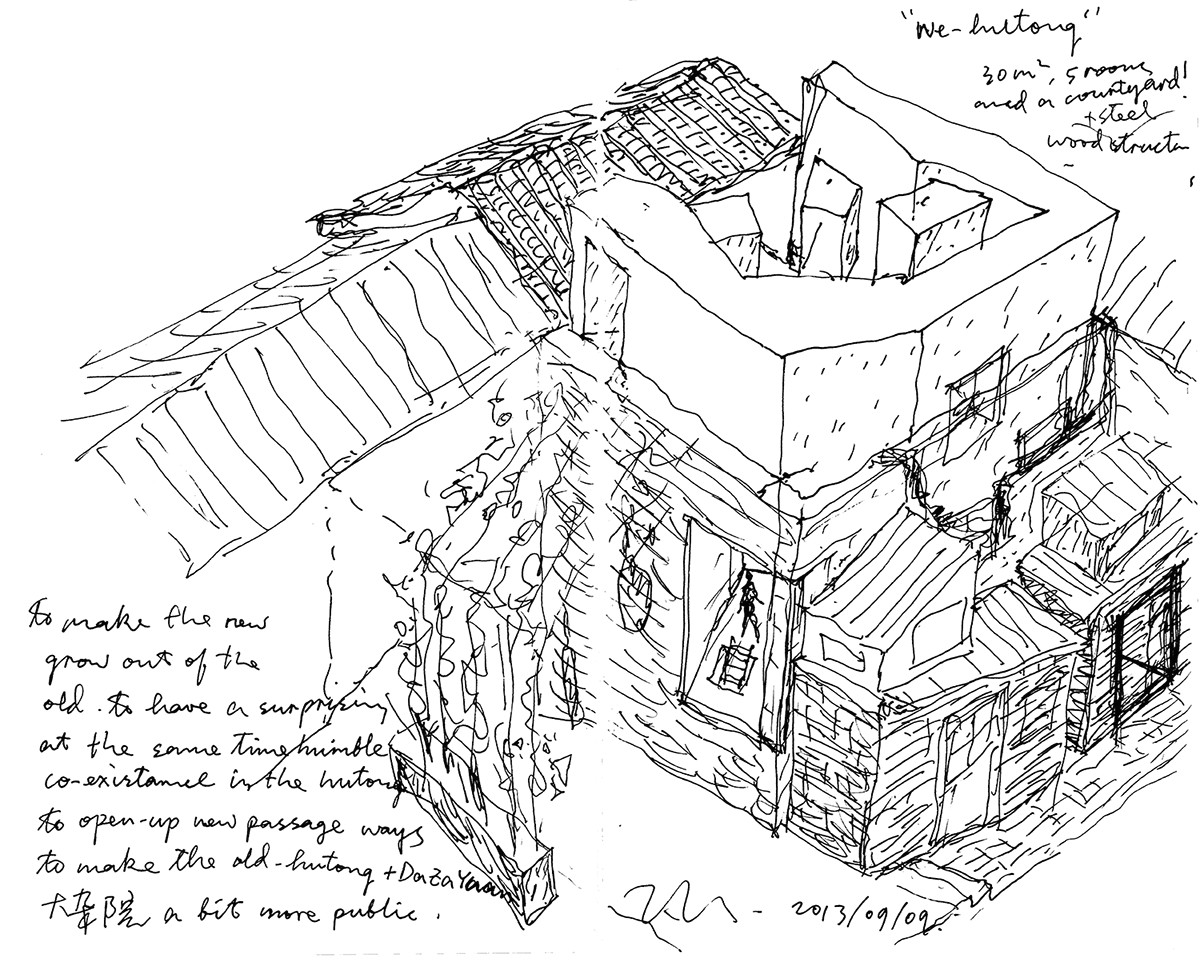 "we-hutong"
30m², 5 rooms
and a courtyard!
+steel
wood structu
to make the new
grow out of the
old. to have a surprising
at the same time humble
co-existamel in the hutong
to open-up new passage ways
to make the old-hutong + DaZaYuan
大杂院 a bit more public.
- 2013/09/09.-